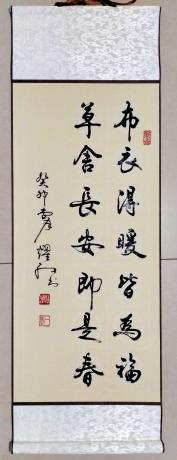 布衣得暖皆為福
草舍長安即是春
癸卯
耀